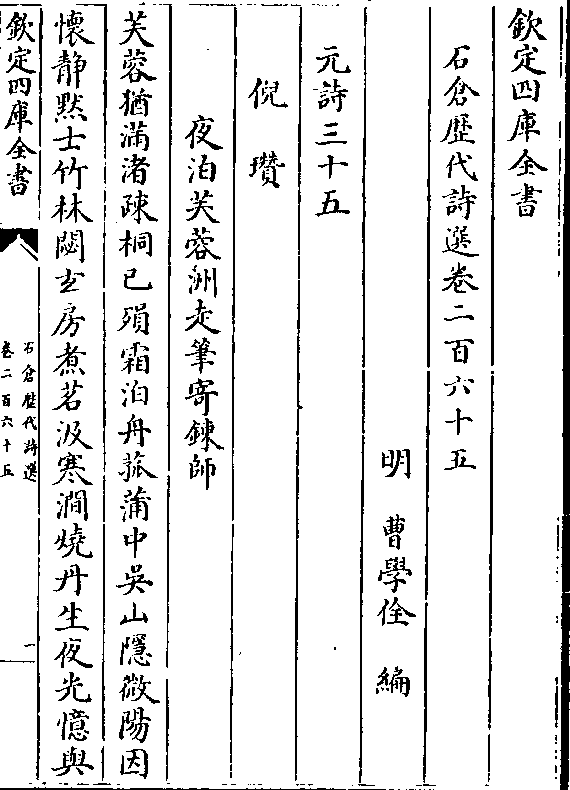 欽定四庫全書
石倉歷代詩選卷二百六十五
明 曹學佺 編
元詩三十五
倪瓚
夜泊芙蓉洲走筆寄鍊師
芙蓉猶滿渚疎桐已殞霜泊舟菰蒲中吳山隱微陽因
懷靜黙士竹林閟玄房煮茗汲寒澗燒丹生夜光憶與
欽定四庫全書
石倉歷代詩選
卷二百六十五
一